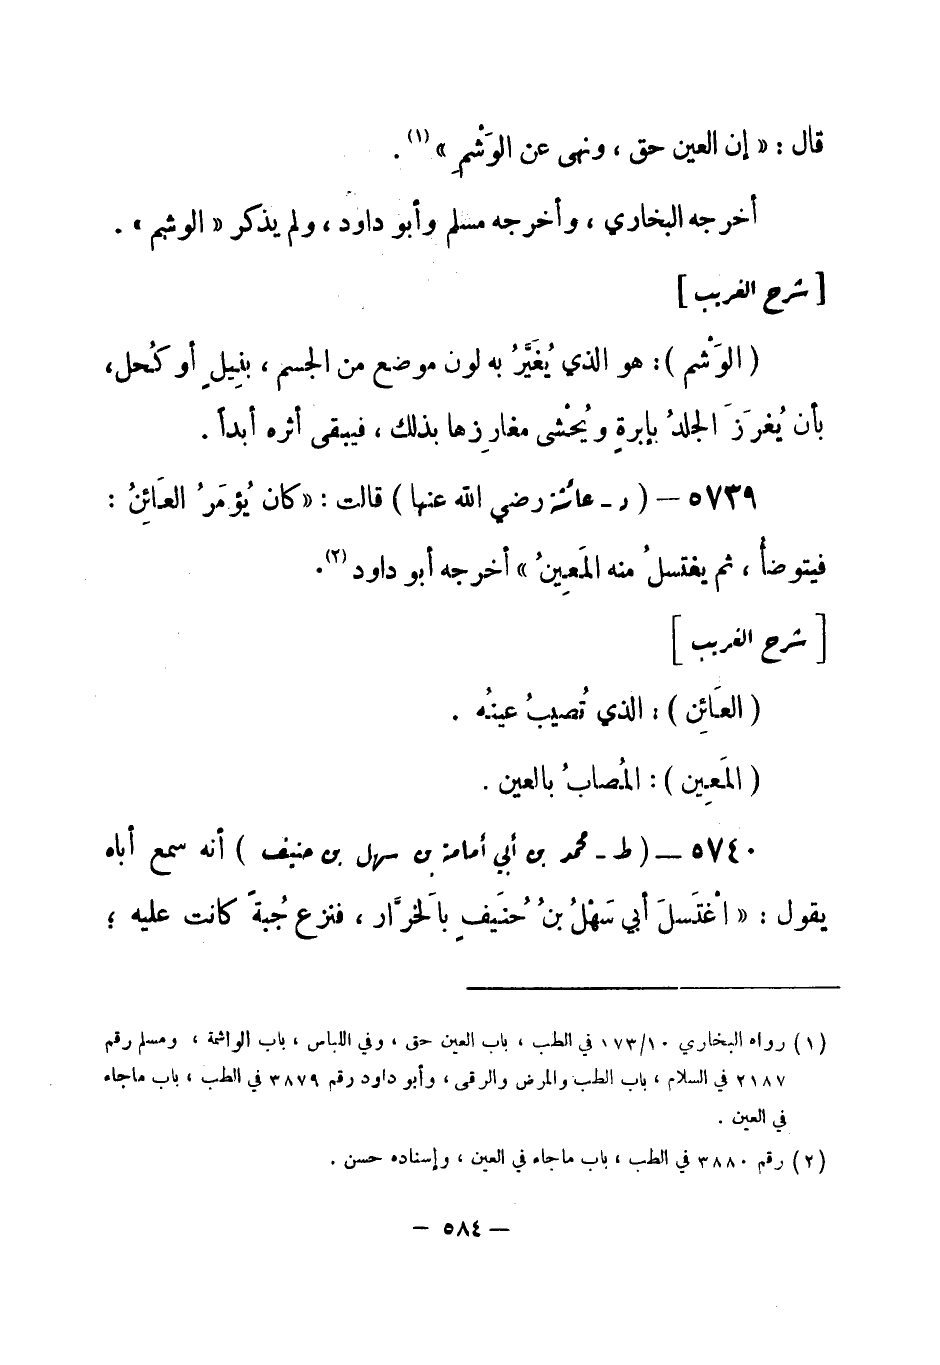 قال : « إن العين حق ، ونهى عن الوَشْمِ » (١) .
أخرجه البخاري ، وأخرجه مسلم وأبو داود ، ولم يذكر « الوشم » .
[ شرح الغريب ]
( الوَشْم ) : هو الذي يُغَيَّرُ به لون موضع من الجسم ، بنِيلٍ أو كُحل ،
بأن يُغرَزَ الجلدُ بإبرةٍ ويُحْشى مغارِزها بذلك ، فيبقى أثره أبداً .
٥٧٣٩ – ( د - عائشة رضي الله عنها ) قالت : « كان يُؤمَرُ العَائِنُ :
فيتوضأُ ، ثم يغتسلُ منه المَعِينُ » أخرجه أبو داود (٢) .
[ شرح الغريب ]
( العَائِن ) : الذي تُصيبُ عينُه .
( المَعِين ) : المُصابُ بالعين .
٥٧٤٠ – ( ط - محمد بن أبي أمامة بن سهل بن حنيف ) أنه سمع أباه
يقول : « اغْتَسلَ أبي سَهْلُ بنُ حُنَيفٍ بالَخرَّار ، فنزع جُبةً كانت عليه ؛
(١) رواه البخاري ١٧٣/١٠ في الطب ، باب العين حق ، وفي اللباس ، باب الواشمة ، ومسلم رقم
٢١٨٧ في السلام ، باب الطب والمرض والرقى ، وأبو داود رقم ٣٨٧٩ في الطب ، باب ماجاء
في العين .
(٢) رقم ٣٨٨٠ في الطب ، باب ماجاء في العين ، وإسناده حسن .
– ٥٨٤ –